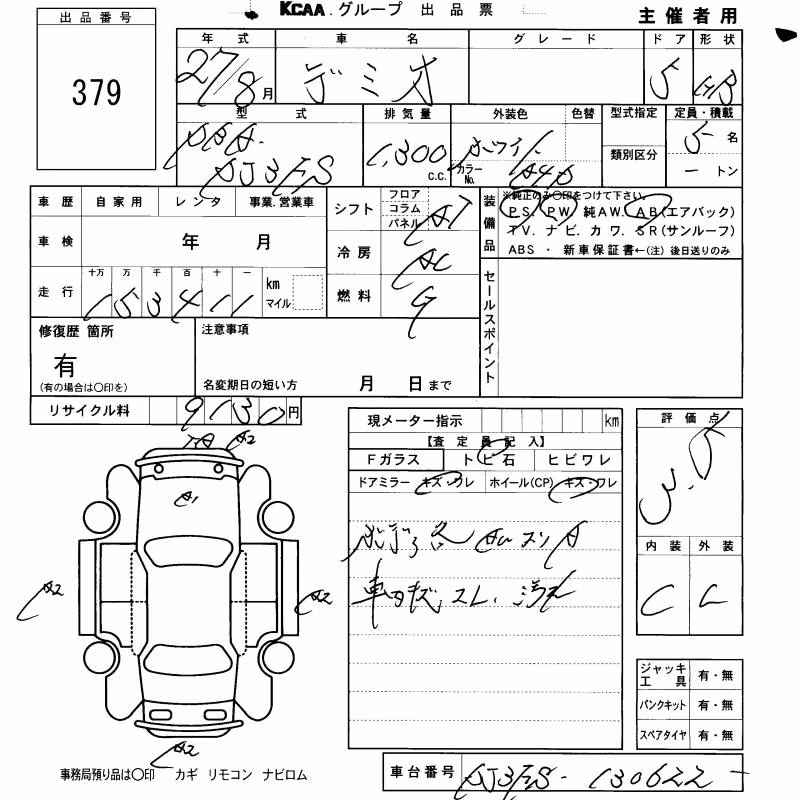 KCAA.グループ 出品票
主催者用
出品番号
379
年式 車名 グレード ドア 形状
27/8月 デミオ 5 HB
型式 排気量 外装色 色替 型式指定 定員・積載
DBA-
DJ3FS 1,300 c.c. ホワイト カラーNo. A4D 類別区分 5名
ートン
車歴 自家用 レンタ 事業.営業車
車検 年 月
走行 十万 万 千 百 十 一
153411 km マイル
シフト フロア コラム パネル AT
冷房 AC
燃料 G
装備品
※純正のみ〇印をつけて下さい。
PS. PW. 純AW. AB(エアバック)
TV. ナビ. カワ. SR(サンルーフ)
ABS ・ 新車保証書←(注) 後日送りのみ
セールスポイント
修復歴 箇所
有
(有の場合は〇印を)
注意事項
名変期日の短い方 月 日まで
リサイクル料 9130円
現メーター指示 km
【査定員記入】
Fガラス トビ石 ヒビワレ
ドアミラー キズ・ワレ ホイール(CP) キズ・ワレ
車内キズ、スレ、汚れ
評価点
3.5
内装 外装
C C
A2
A1
A2
A2
A2
ジャッキ工具 有・無
パンクキット 有・無
スペアタイヤ 有・無
事務局預り品は〇印 カギ リモコン ナビロム
車台番号 DJ3FS-130622